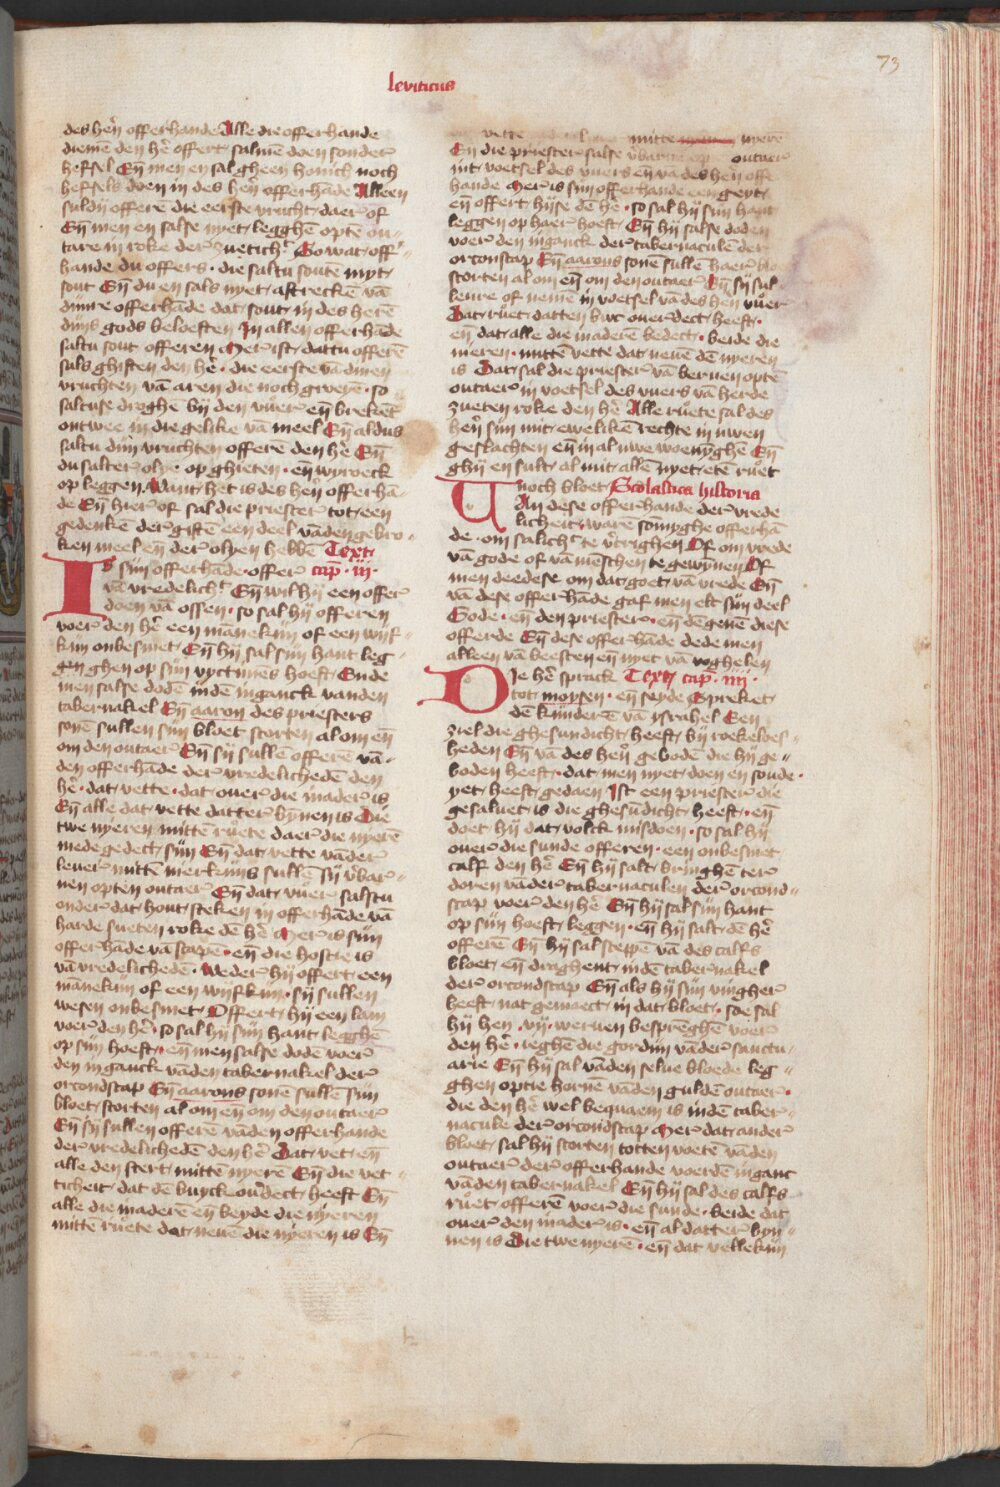 73
leviticus
des hēn offerhande Alle die offerhande
diemē den hē offert salmē doen sonder
heffel Eñ men en sal gheen honich noch
heffels doen in des hēn offerhāde Alleen
suldij offerē die eerste vrucht daer of
Eñ men en salse nyet legghē opte ou-
tare in roke der zueticht So wat off
hande du offers · die saltu soute myt
sout Eñ du en sals nyet aftreckē vā
dijnre offerhāde dat sout in des herē
dijns gods beloeften In allen offerhāde
saltu sout offeren · Mer ist dattu offerē
sals ghiften den hē · die eerste vā dinen
vruchten vā aren die noch groyē · so
saltuse droghē bij den vuer eñ brekēt
ontwee in die gelike vā meel Eñ aldus
saltu dijn vruchten offerē den hē Eñ
du salter olye op ghieten · eñ wyroeck
op leggen Want het is des hēn offerhā
de Eñ hier of sal die priester tot een
gedenkē der giftē een deel vāden gebro-
ken meel eñ der olyen hebbē Text
Is sijn offerhāde offer cap · iij ·
vā vredelicht Eñ wil hij een offer
doen vā ossen · so sal hij offeren
voer den hē een māneken of een wijf-
kijn onbesmet Eñ hij sal sijn hant leg-
gen ghen op sijn vyctimēs hoeft Ende
men salse dodē indē inganck vanden
tabernakel Eñ aaron des priesters
sonē sullen sijn bloet storten al om eñ
om den outaer Eñ sij sullē offeren vā
den offerhāde der vredelichedē den
hē · dat vette · dat over die inader is
Eñ alle dat vette datter bynen is Die
twe nyeren mittē ruete daer die nyerē
mede gedect sijn Eñ dat vette vāder
lever mittē nierkijns sullē sij vbar-
nen opten outaer Eñ dat vuer saltu
onder dat hout steken in offerhāde vā
harde sueten roke dē hē Mer is sijn
offerhāde vā scapē · eñ die hostie is
vā vredelichede · Weder hij offert een
mānekijn of een wijfkijn · sij sullen
wesen onbesmet · Offert hij een lam
voer den hē · so sal hij sijn hant legghē
op sijn hoeft · eñ men salse dodē voer
den inganck vāden tabernakel der
orcondscap Eñ aarons sonē sullē sijn
bloet storten al om eñ om den outaer
Eñ sij sullen offerē vāden offerhande
der vredelichedē den hē Dat vet eñ
alle den stert mittē nyerē Eñ die vet-
ticheit dat dē buyck oudect heeft Eñ
alle die inaderē eñ beyde die nyeren
mittē ruete dat nevē die nyeren is Eñ
vette mitte nyere
Eñ die priester salse vbarnē op outaer
int voetsel des vuers eñ vā des hēn offer
hande Mer is sijn offerhande een geyt
eñ offert hijse dē hē · so sal hij sijn hant
leggen op haer hoeft Eñ hij salse doden
voer den inganck der tabernaculē der
orconscap Eñ aarons sonē sullē haer
storten al om eñ om den outaer Eñ sij sul
leure of nemē in voetsel vā des hēn vuer
Dat ruet datten buc ouerdect heeft ·
eñ dat alle die inaderē bedect · beide die
nieren · mittē vette dat nevē dē nyeren
is Dat sal die priester vā bernen optē
outaer in voetsel des vuers vā herde
zueten roke den hē Alle ruete sal des
hēn sijn mit ewelikē rechte in uwen
geslachten eñ in al uwe woenijnghē Eñ
ghij en sult al mit allē nyet etē ruet
noch bloet Scolastica historia
Van dese offerhande der vrede
licheit ware somyghe offerhā
de · om salicht te vcrighen Of om vrede
vā gode of vā mēschen te gewynen Of
men deedese om dat goet vā vrede Eñ
vā dese offerhāde gaf men elc sijn deel
Gode · eñ den priester · eñ dē genē diese
offerde Eñ dese offerhāde dede men
alleen vā beesten eñ nyet vā voghelen
Die hē sprack Text cap · iiij ·
tot moysen · eñ seyde Spreket
dē kijnderē vā ysrahel Een
ziel die ghesundicht heeft bij roekeloes-
heden Eñ vā des hēn gebodē die hij ge-
boden heeft · dat men nyet doen en soude ·
yet heeft gedaen Ist een priester die
gesaluet is die ghesūdicht heeft · eñ
doet hij dat volck misdoen · so sal hij
ouer die sunde offeren · een onbesmet
calf den hē Eñ hij salt bringhē ter
doren vāder tabernaculen der orcond-
scap voer den hē Eñ hij sal sijn hant
op sijn hoeft leggen · eñ hij salt dē hē
offerē Eñ hij sal sceppē vā des calfs
bloet eñ draghent indē tabernakel
der orcondscap Eñ als hij sijn vingher
heeft nat gemaect in dat bloet · soe sal
hij hen · vij · werven besprēghē voer
den hē · ieghē die gordijn vāder sanctu-
arie Eñ hij sal vāden selue bloede leg-
ghen optie hornē vāden guldē outaer ·
die den hē wel bequaem is indē taber-
nacule der orcondscap Mer dat ander
bloet sal hij storten totten voetē vāden
outaer der offerhande voerdē inganc
vāden tabernakel Eñ hij sal des calfs
ruet offerē voer die sunde · beide dat
ouer den inader is · eñ al datter byn-
nen is Die twe nyerē · eñ dat vellekijn